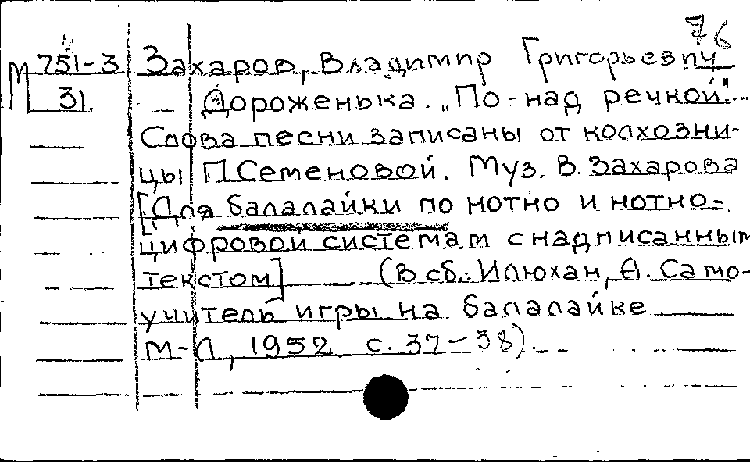 76
М 751-3 Захаров, Владимир Григорьевич
31 Дороженька. „По-над речкой"...
Слова песни записаны от колхозни-
цы П.Семеновой. Муз. В. Захарова
[Для балалайки по нотно и нотно-
цифровой системам с надписанным
текстом] (В сб.: Илюхин, А. Само-
учитель игры на балалайке
М-Л, 1952 с. 37-38).